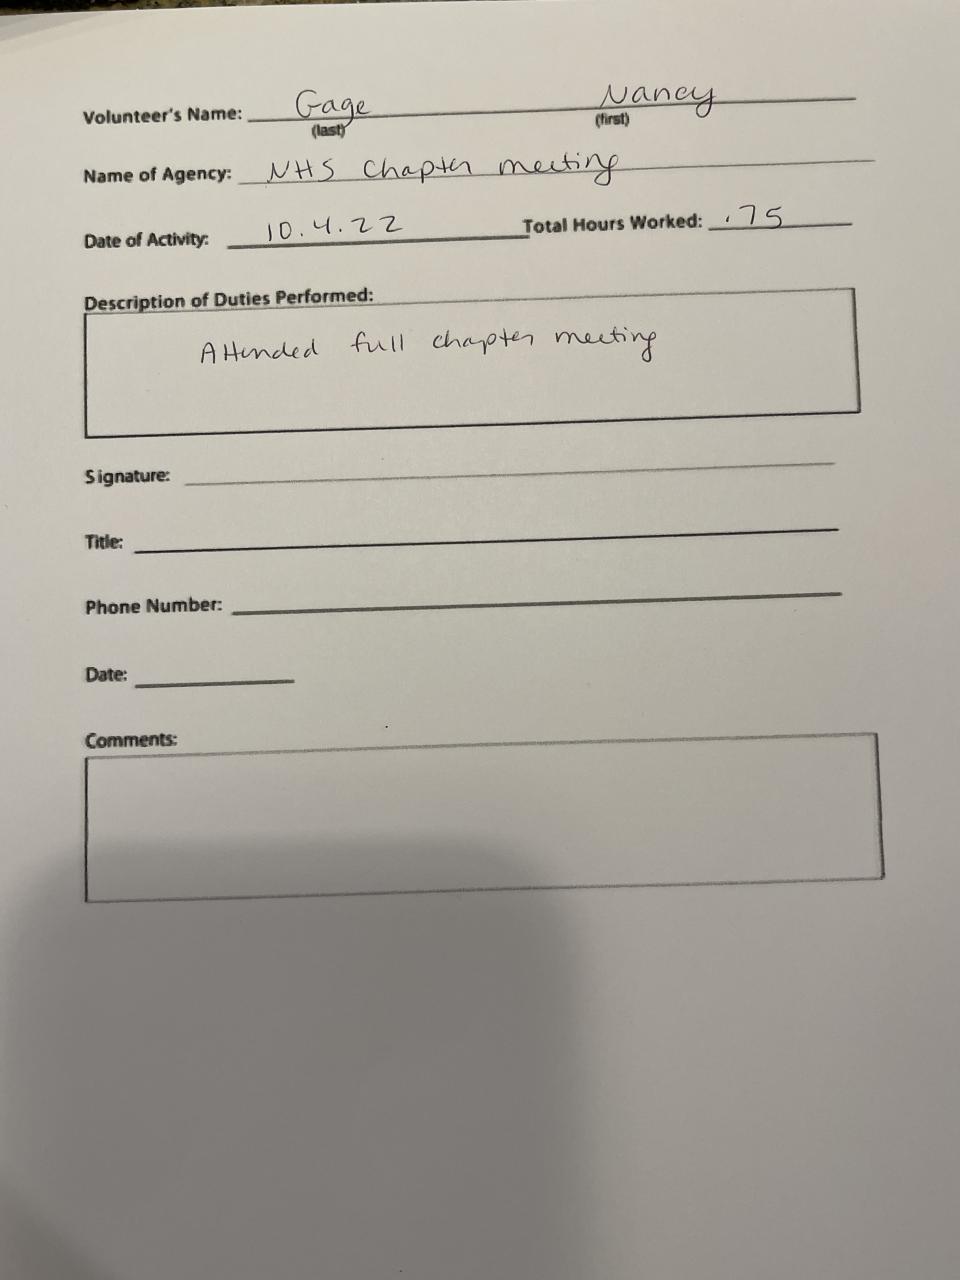 Volunteer's Name: Gage Nancy
(last) (first)
Name of Agency: NHS Chapter meeting
Date of Activity: 10.4.22 Total Hours Worked: .75
Description of Duties Performed:
Attended full chapter meeting
Signature:
Title:
Phone Number:
Date:
Comments: